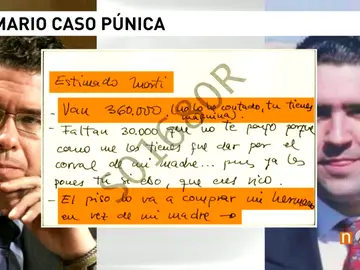 MARIO CASO PÚNICA
Estimado Marti
- Van 360.000 (no lo he contado, tu tienes
máquina).
- Faltan 30.000 que no te pongo porque
como me los tienes que dar por el
corral de mi madre... pues ya los
pones tu si eso, que eres rico.
- El piso lo va a comprar mi hermano
en vez de mi madre →
SO 168OR
n